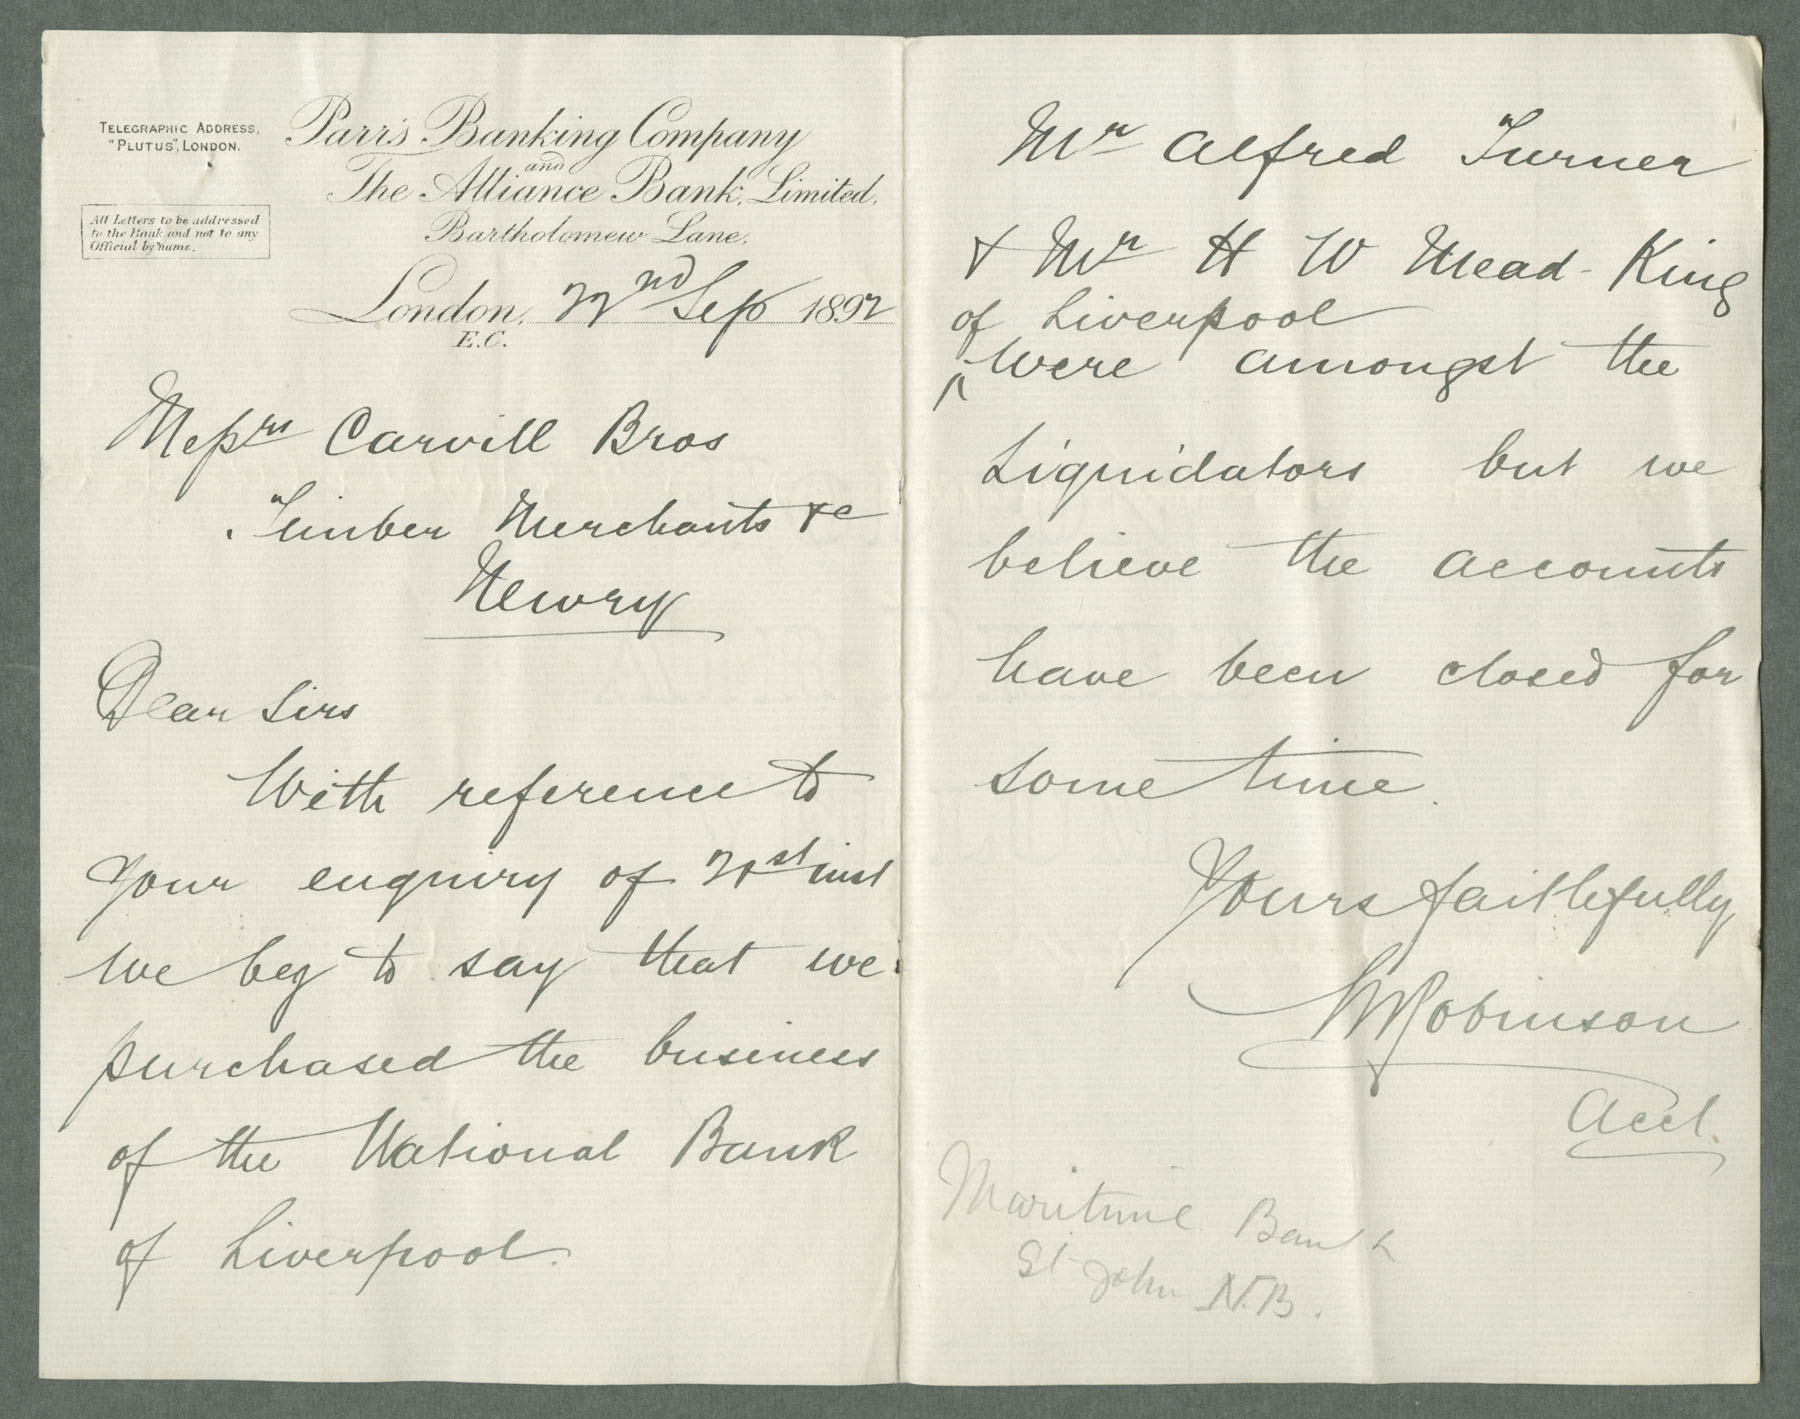 TELEGRAPHIC ADDRESS,
"PLUTUS", LONDON.
Parr's Banking Company
and
The Alliance Bank, Limited,
Bartholomew Lane,
All Letters to be addressed
to the Bank and not to any
Official by name.
London, 22nd Sep 1892
E.C.
Messrs Carvill Bros
Timber Merchants &c
Newry
Dear Sirs
With reference to
your enquiry of 21st inst
we beg to say that we
purchased the business
of the National Bank
of Liverpool.
Mr Alfred Turner
& Mr H W Mead-King
of Liverpool
^ were amongst the
Liquidators but we
believe the accounts
have been closed for
some time.
Yours faithfully
Robinson
Acct.
Maritime Bank
St John N.B.